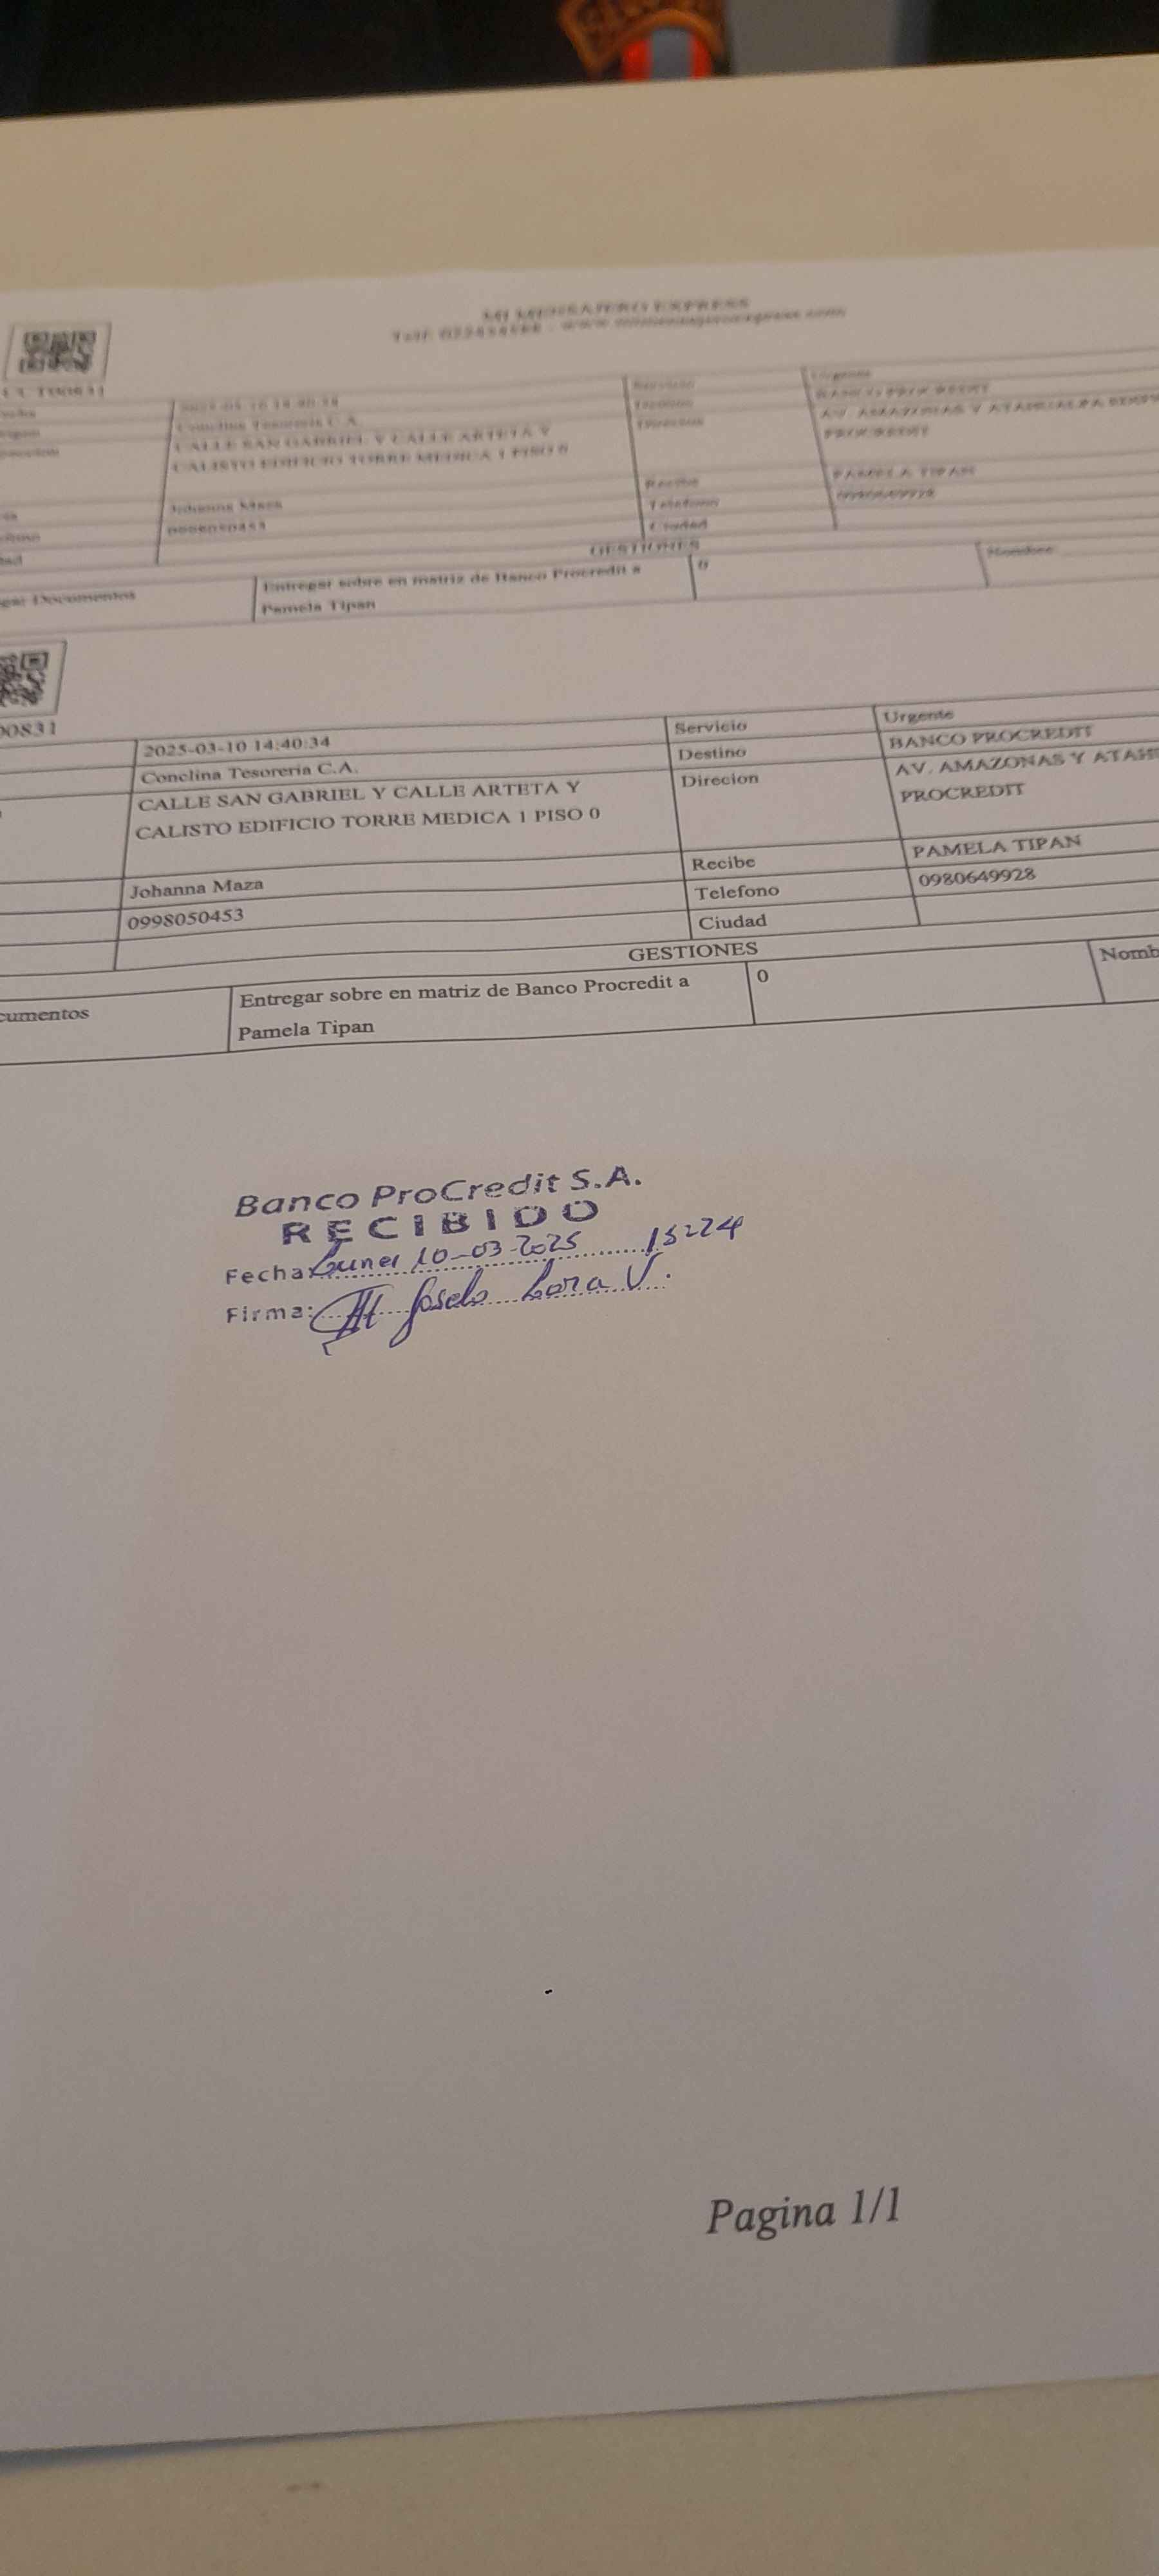 MI MENSAJERO EXPRESS
2025-03-10 14:40:34
Conclina Tesoreria C.A.
CALLE SAN GABRIEL Y CALLE ARTETA Y
CALISTO EDIFICIO TORRE MEDICA 1 PISO 0
Servicio
Urgente
BANCO PROCREDIT
AV. AMAZONAS Y ATAHUALPA
PROCREDIT
Recibe
PAMELA TIPAN
Johanna Maza
Telefono
Ciudad
GESTIONES
Documentos
Entregar sobre en matriz de Banco Procredit a
Pamela Tipan
0
Nombre
00831
2025-03-10 14:40:34
Servicio
Urgente
Conclina Tesoreria C.A.
Destino
BANCO PROCREDIT
CALLE SAN GABRIEL Y CALLE ARTETA Y
CALISTO EDIFICIO TORRE MEDICA 1 PISO 0
Direcion
AV. AMAZONAS Y ATAH
PROCREDIT
Johanna Maza
Recibe
PAMELA TIPAN
0998050453
Telefono
0980649928
Ciudad
GESTIONES
cumentos
Entregar sobre en matriz de Banco Procredit a
Pamela Tipan
0
Nomb
Banco ProCredit S.A.
RECIBIDO
Fecha: Lunes 10-03-2025 15:24
Firma: Joselo Lara V.
Pagina 1/1